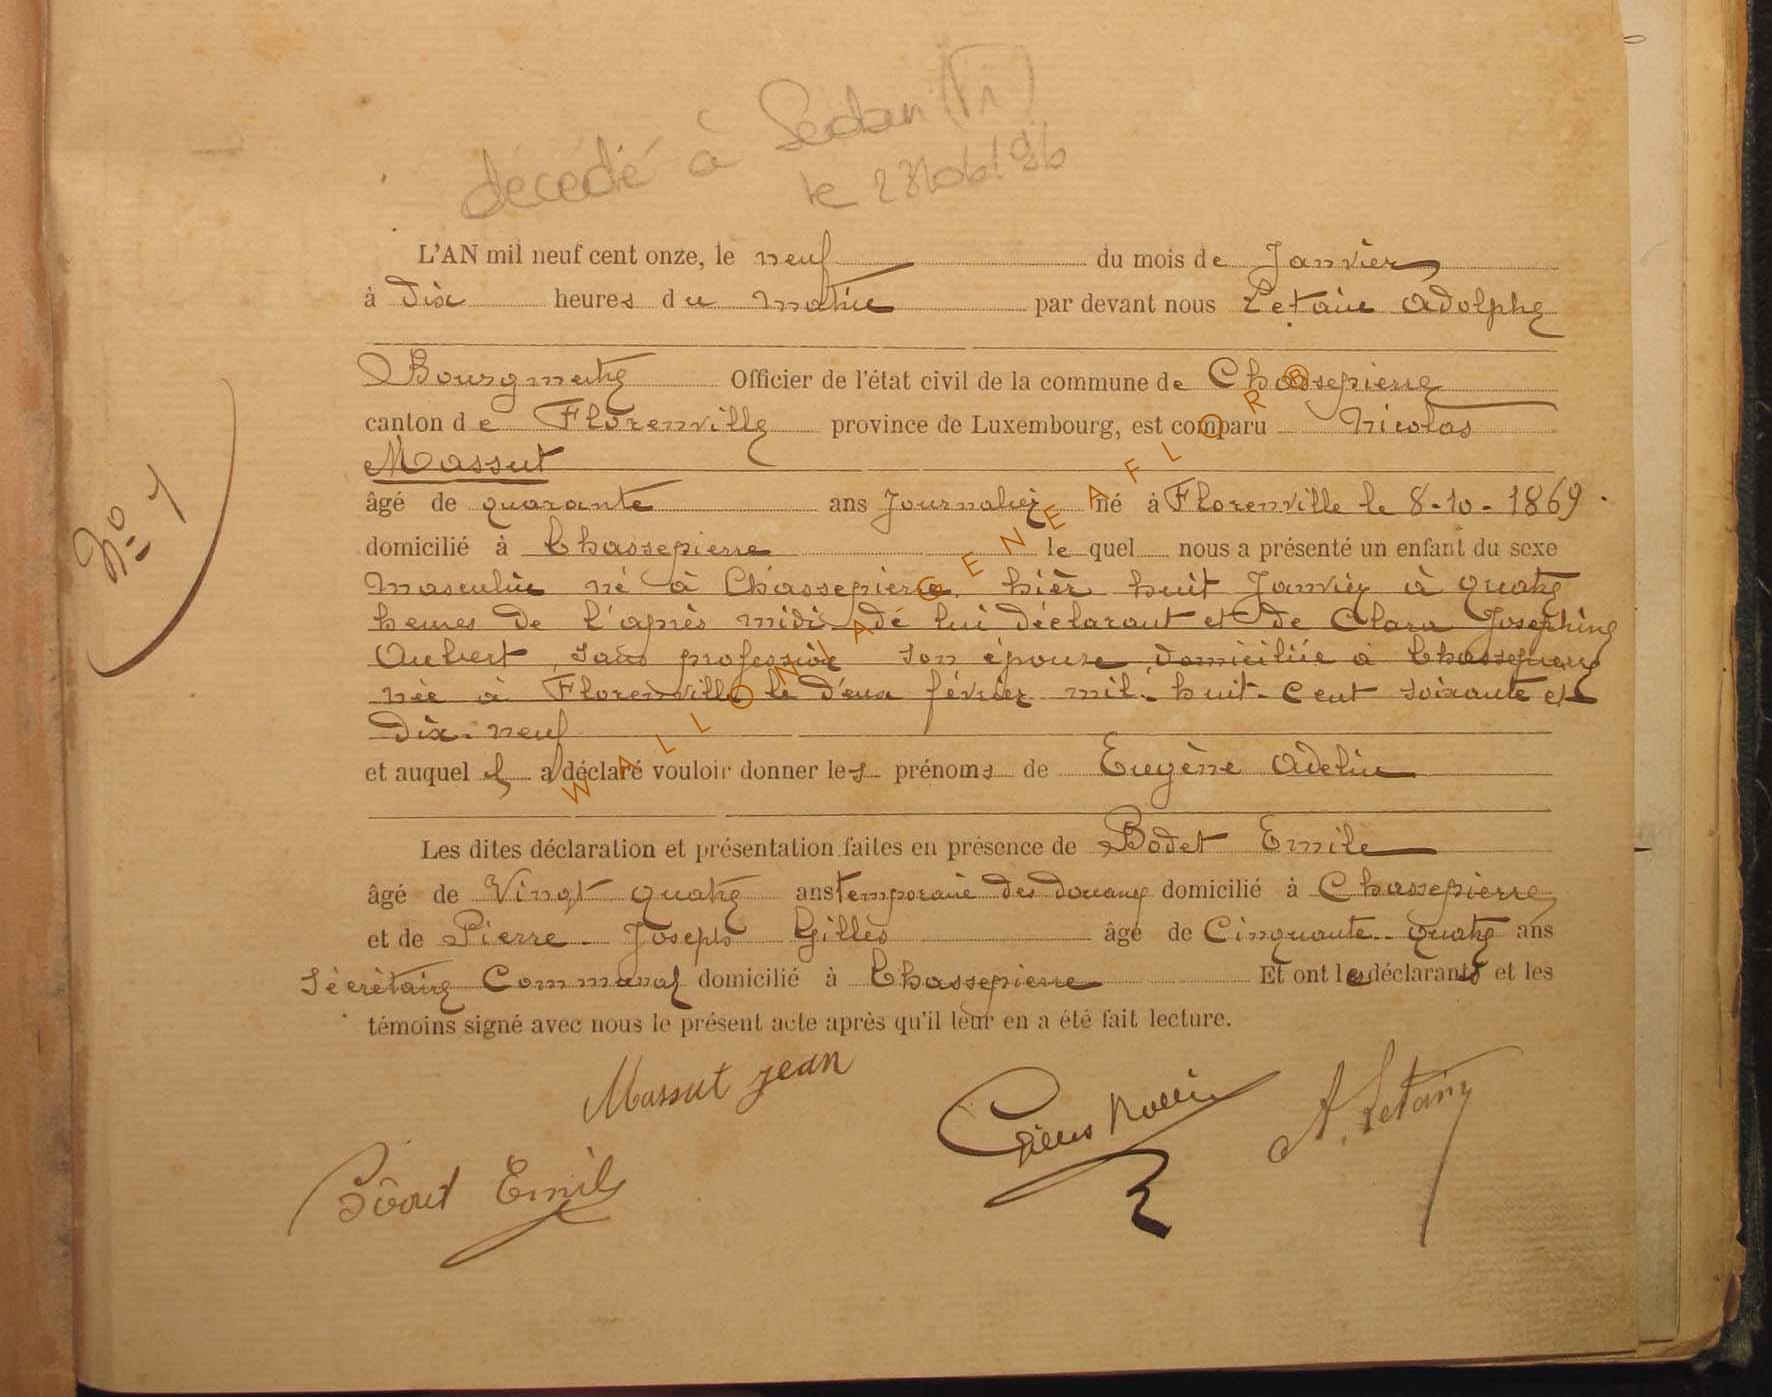 décédé à Sedan (Fr)
le
L'AN mil neuf cent onze, le neuf du mois de Janvier
à dix heures du matin par devant nous Letaie Adolphe
Bourgmestre Officier de l'état civil de la commune de Chassepierre
canton de Florenville province de Luxembourg, est comparu Nicolas
Massut
âgé de quarante ans Journalier né à Florenville le 8-10-1869.
domicilié à Chassepierre le quel nous a présenté un enfant du sexe
N° 1
Masculin né à Chassepierre hièr huit Janvier à quatre
heures de l'après midi de lui déclarant et de Clara Joséphine
Aubert, sans profession son épouse domiciliée à Chassepierre
née à Florenville le deux février mil-huit-cent soixante et
dix-neuf
et auquel il a déclaré vouloir donner les prénoms de Eugène Adelin
Les dites déclaration et présentation faites en présence de Bodet Emile
âgé de Vingt quatre ans temporaire des douanes domicilié à Chassepierre
et de Pierre-Joseph Gillès âgé de Cinquante-quatre ans
Sécrétaire Communal domicilié à Chassepierre Et ont les déclarants et les
témoins signé avec nous le présent acte après qu'il leur en a été fait lecture.
Massut Jean
Gilles
A. Letaie
Emile
WALLONIA GENEAFLOR B